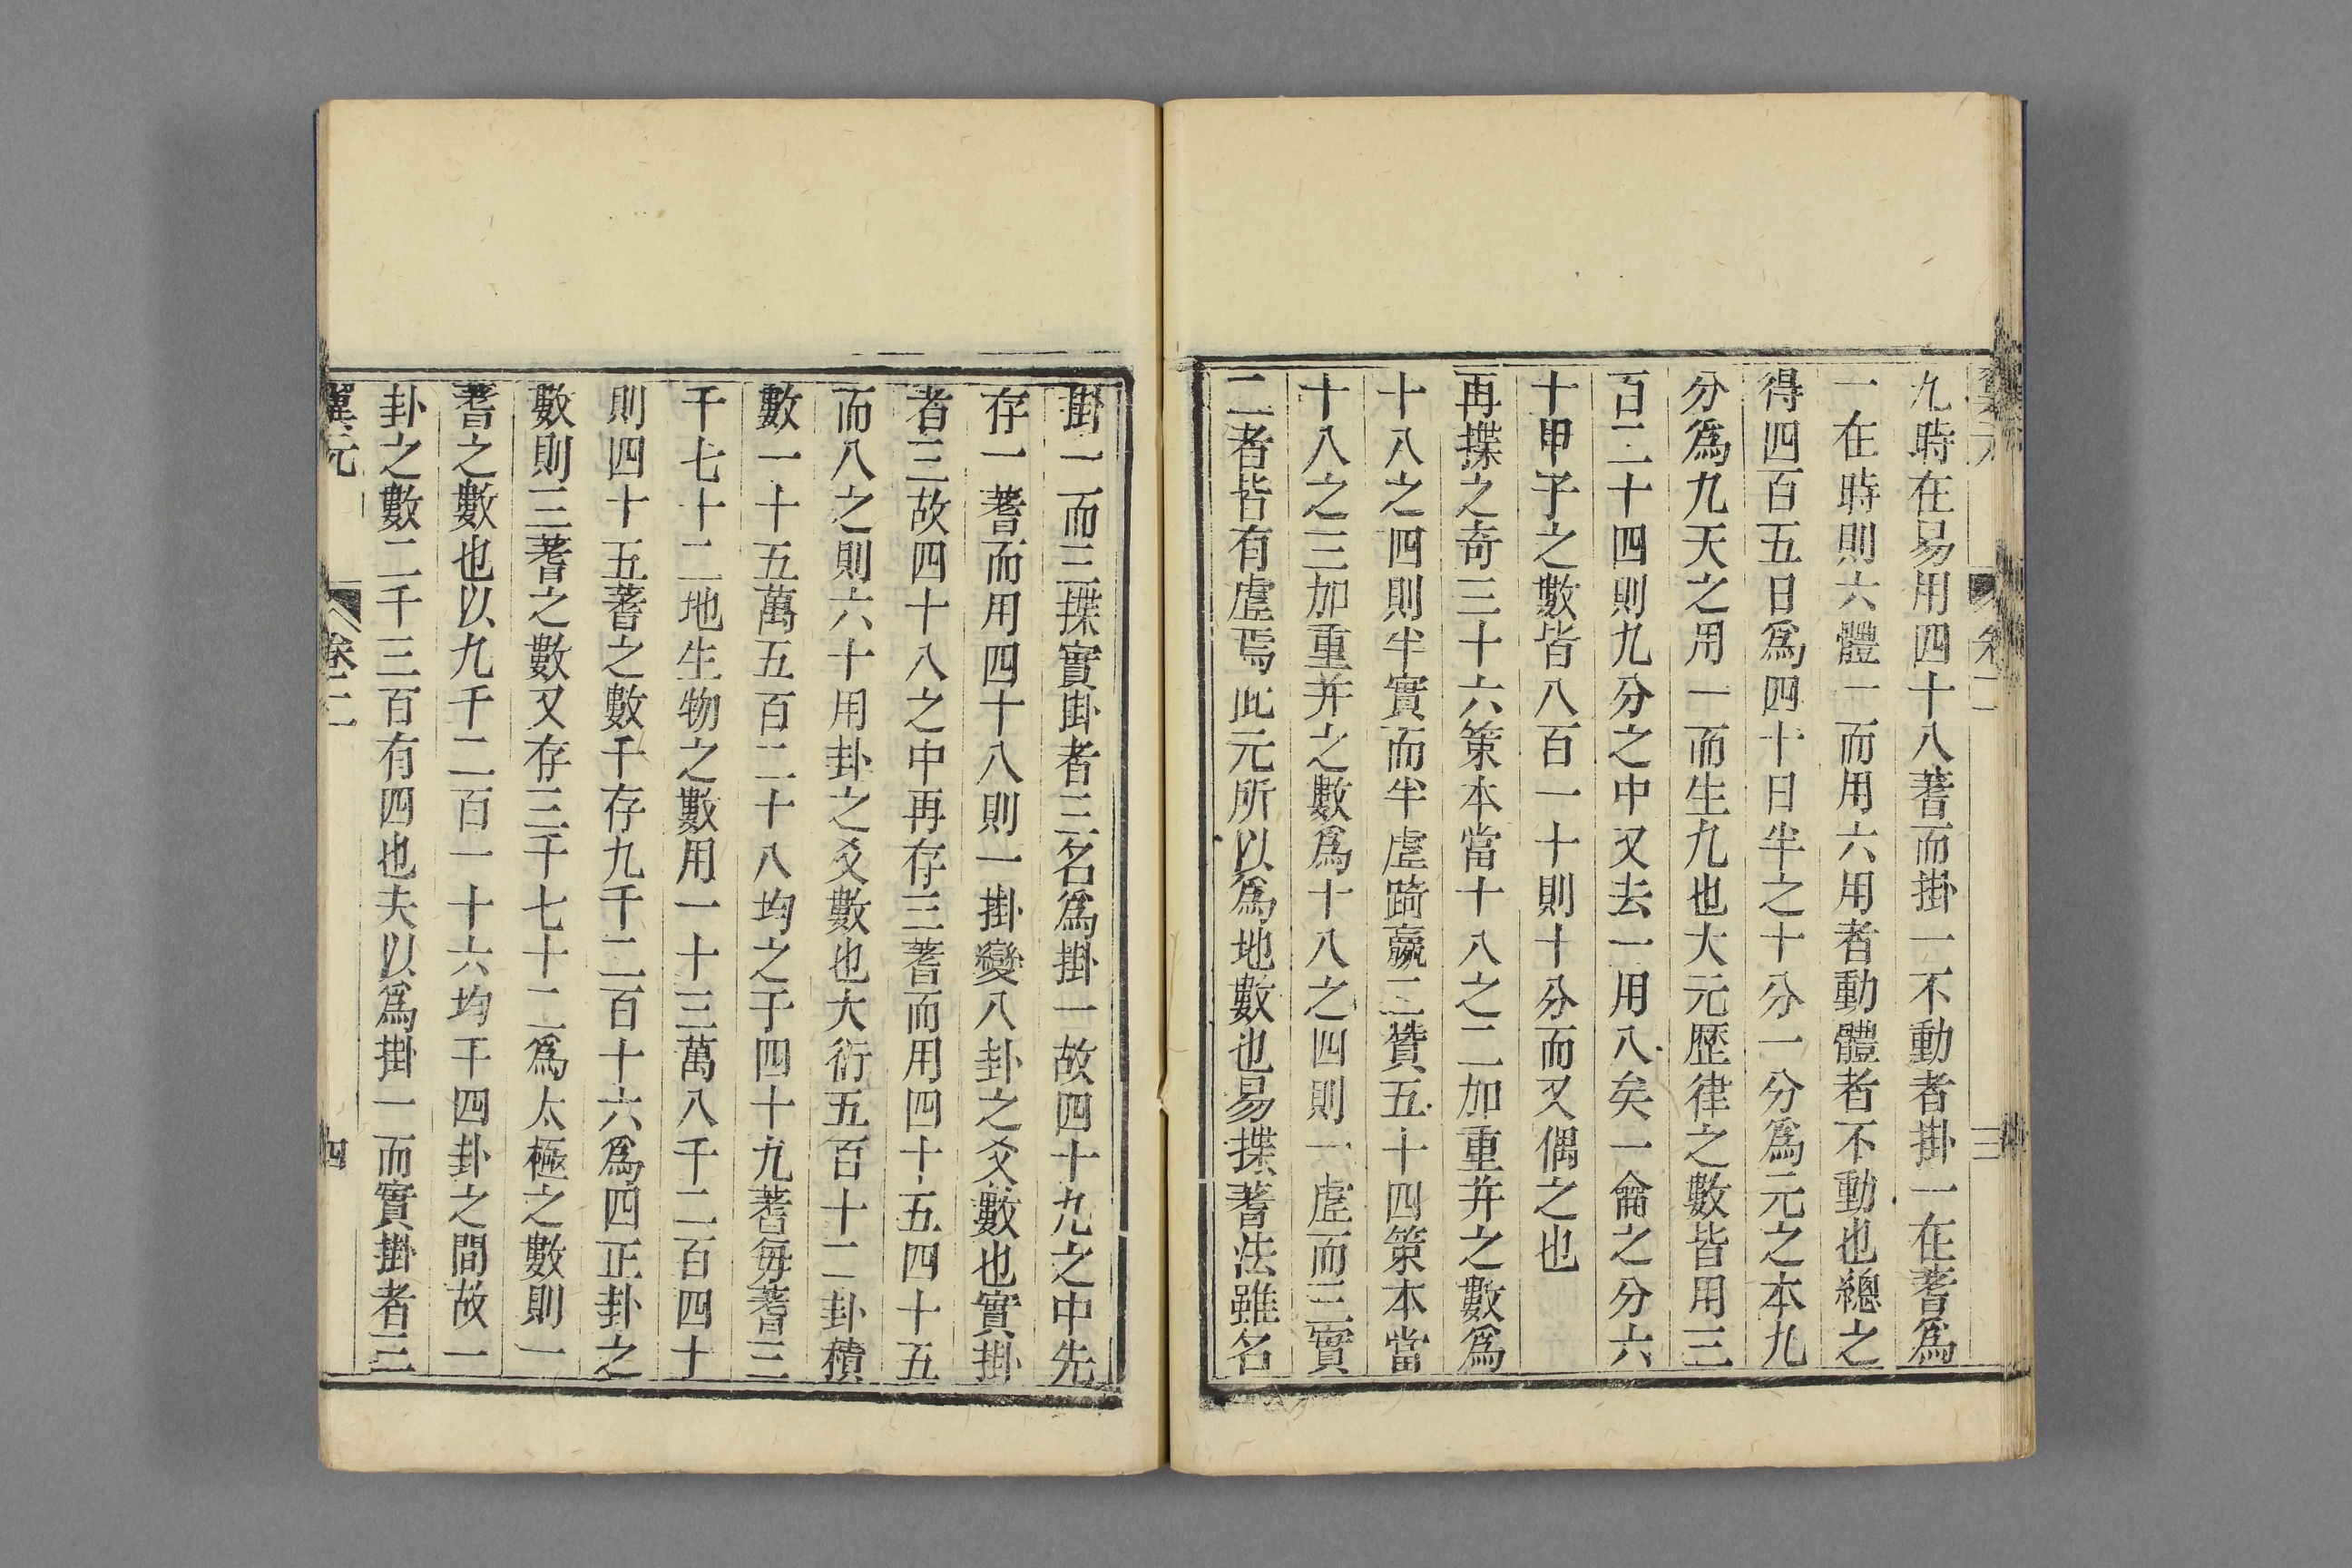 九時在易用四十八蓍而掛一不動者掛一在蓍為
一在時則六體一而用六用者動體者不動也總之
得四百五日為四十日半之十分一分為元之本九
分為九天之用一而生九也大元歷律之數皆用三
百二十四則九分之中又去一用八矣一龠之分六
十甲子之數皆八百一十則十分而又偶之也
再揲之奇三十六策本當十八之二加重并之數為
十八之四則半實而半虛踦嬴二贊五十四策本當
十八之三加重并之數為十八之四則一虛而三實
二者皆有虛焉此元所以為地數也易揲蓍法雖名
卷二
三
掛一而三揲實掛者三名為掛一故四十九之中先
存一蓍而用四十八則一掛變八卦之爻數也實掛
者三故四十八之中再存三蓍而用四十五四十五
而八之則六十用卦之爻數也大衍五百十二卦積
數一十五萬五百二十八均之于四十九蓍每蓍三
千七十二地生物之數用一十三萬八千二百四十
則四十五蓍之數千存九千二百十六為四正卦之
數則三蓍之數又存三千七十二為太極之數則一
蓍之數也以九千二百一十六均于四卦之間故一
卦之數二千三百有四也夫以為掛一而實掛者三
翼元
卷二
四